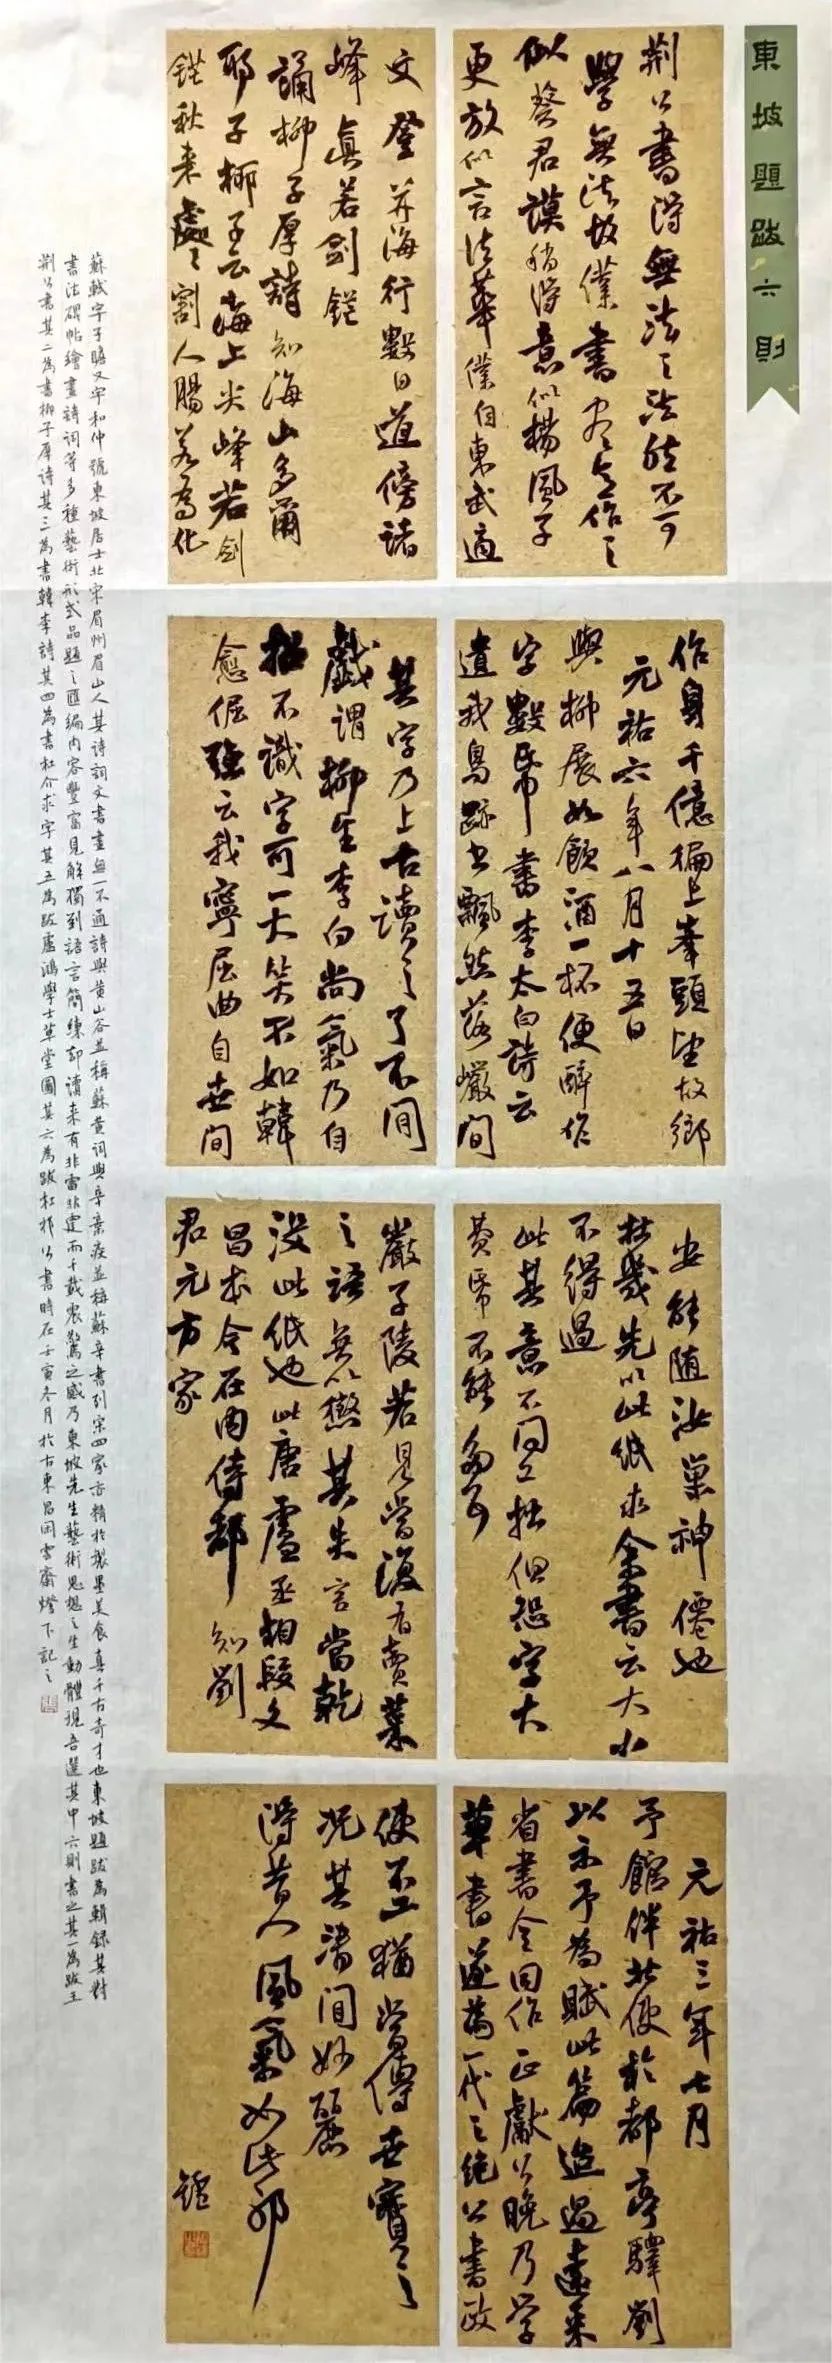 東坡題跋六則
荆公書得無法之法然不可
學無法故僕書盡意作之
似蔡君謨稍得意似楊風子
更放似言法華僕自東武適
文登并海行數日道傍諸
峰真若劍鋩
誦柳子厚詩知海山多爾
耶子柳子云海上尖峰若劍
鋩秋來處處割人腸若為化
作身千億徧上峯頭望故鄉
元祐六年八月十五日
與柳展如飲酒一杯便醉作
字數帋書李太白詩云
遺我鳥跡書飄然落巖間
其字乃上古讀之了不閒
戲謂柳生李白尚氣乃自
招不識字可一大笑不如韓
愈倔強云我寧屈曲自世間
安能隨汝巢神僊也
杜幾先以此紙求余書云大小
不得過
此其意不問工拙但恐字大
費帋不能多耳
嚴子陵若見當復有賣菜
之語無以懲其失言當乾
没此紙也此唐盧丞相段文
昌本今在内侍都知劉
君元方家
元祐三年七月
予館伴北使於都亭驛劉
以示予為賦此篇迨過遠來
省書令同作正獻公晚乃學
草書遂為一代之絶公書政
使不工猶當傳世寶之
况其清閒妙麗
得昔人風氣如此耶
蘇軾字子瞻又字和仲號東坡居士北宋眉州眉山人其詩詞文書畫無一不通詩與黄山谷並稱蘇黄詞與辛棄疾並稱蘇辛書列宋四家亦精於製墨美食真千古奇才也東坡題跋為輯録其對
書法碑帖繪畫詩詞等多種藝術形式品題之匯編内容豐富見解獨到語言簡練却讀來有非雷非霆而千載震驚之感乃東坡先生藝術思想之生動體現吾選其中六則書之其一為跋王
荆公書其二為書柳子厚詩其三為書韓李詩其四為書杜介求字其五為跋盧鴻學士草堂圖其六為跋杜祁公書時在壬寅冬月於古東昌閒雲齋燈下記之